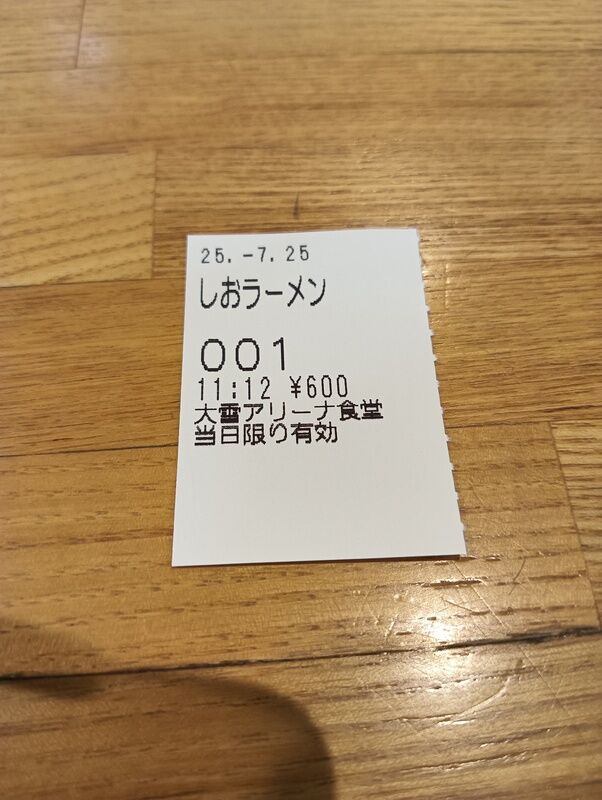 25.-7.25
しおラーメン
001
11:12 ¥600
大雪アリーナ食堂
当日限り有効